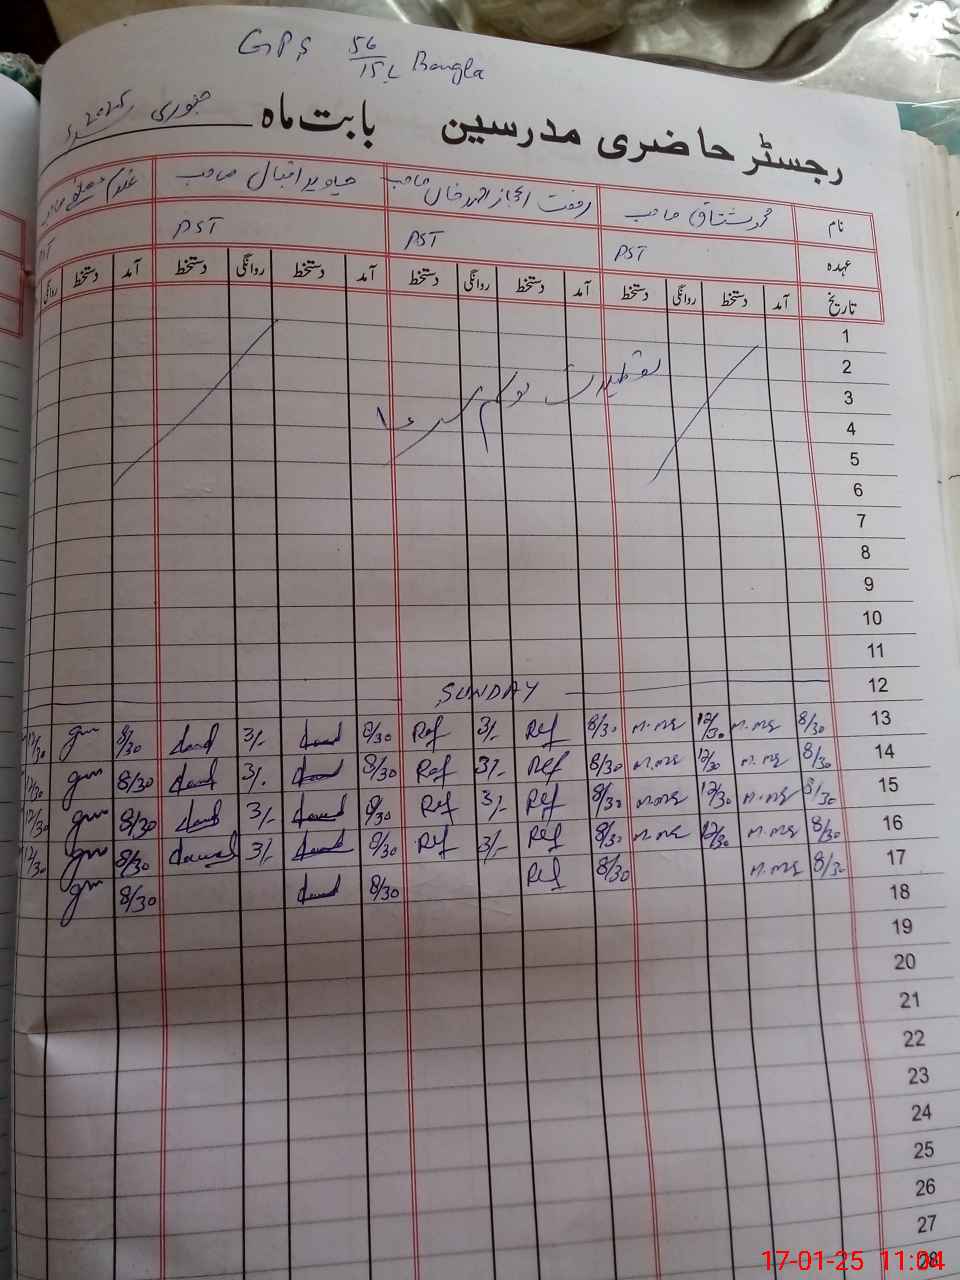 GPS 56/15L Bangla
رجسٹر حاضری مدرسین بابت ماہ جنوری 2025ء
نام محمد مشتاق صاحب رفعت اعجاز احمد خاں صاحب جاوید اقبال صاحب غلام مصطفی
عہدہ PST PST PST
تاریخ آمد دستخط روانگی دستخط آمد دستخط روانگی دستخط آمد دستخط روانگی دستخط آمد دستخط روانگی
1
2
تعطیلات موسم سرما
3
4
5
6
7
8
9
10
11
12 SUNDAY
13 8/30 12/30 8/30 Ref 3/- Ref 8/30 3/- 8/30 12/30
14 8/30 12/30 8/30 Ref 3/- Ref 8/30 3/- 8/30 12/30
15 8/30 12/30 8/30 Ref 3/- Ref 8/30 3/- 8/30 12/30
16 8/30 12/30 8/30 Ref 3/- Ref 8/30 3/- 8/30 12/30
17 8/30 8/30 Ref 8/30 8/30
18
19
20
21
22
23
24
25
26
27
28
17-01-25 11:04